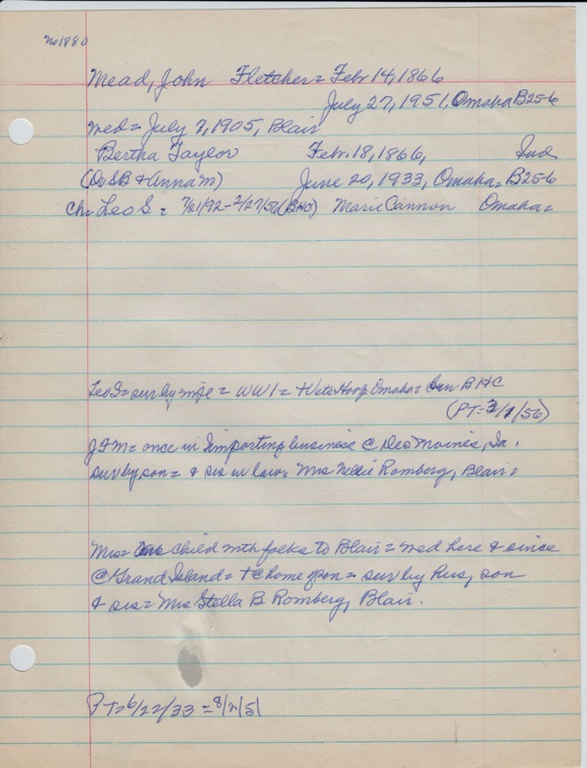 no 1880
Mead, John Fletcher = Feb. 14, 1866
July 27, 1951, Omaha B25-6
med = July 7, 1905, Blair
Bertha Taylor Feb. 18, 1866, Ind.
(D, S B & Anna M) June 20, 1933, Omaha = B25-6
Ch = Leo S = 7/21/92 - 2/27/56 (BHC) Marie Cannon Omaha =
Leo S = sur by wife = WW I = + Vets Hosp Omaha = bur B H C
(PT = 3/1/56)
J F M = once in Importing business @ Des Moines, Ia.
sur by son = & sis in law = Mrs Nellie Romberg, Blair =
Mrs = child with folks to Blair = med here & since
@ Grand Island = + @ home of son = sur by hus, son
& sis = Mrs Stella B Romberg, Blair.
PT = 6/22/33 = 8/2/51